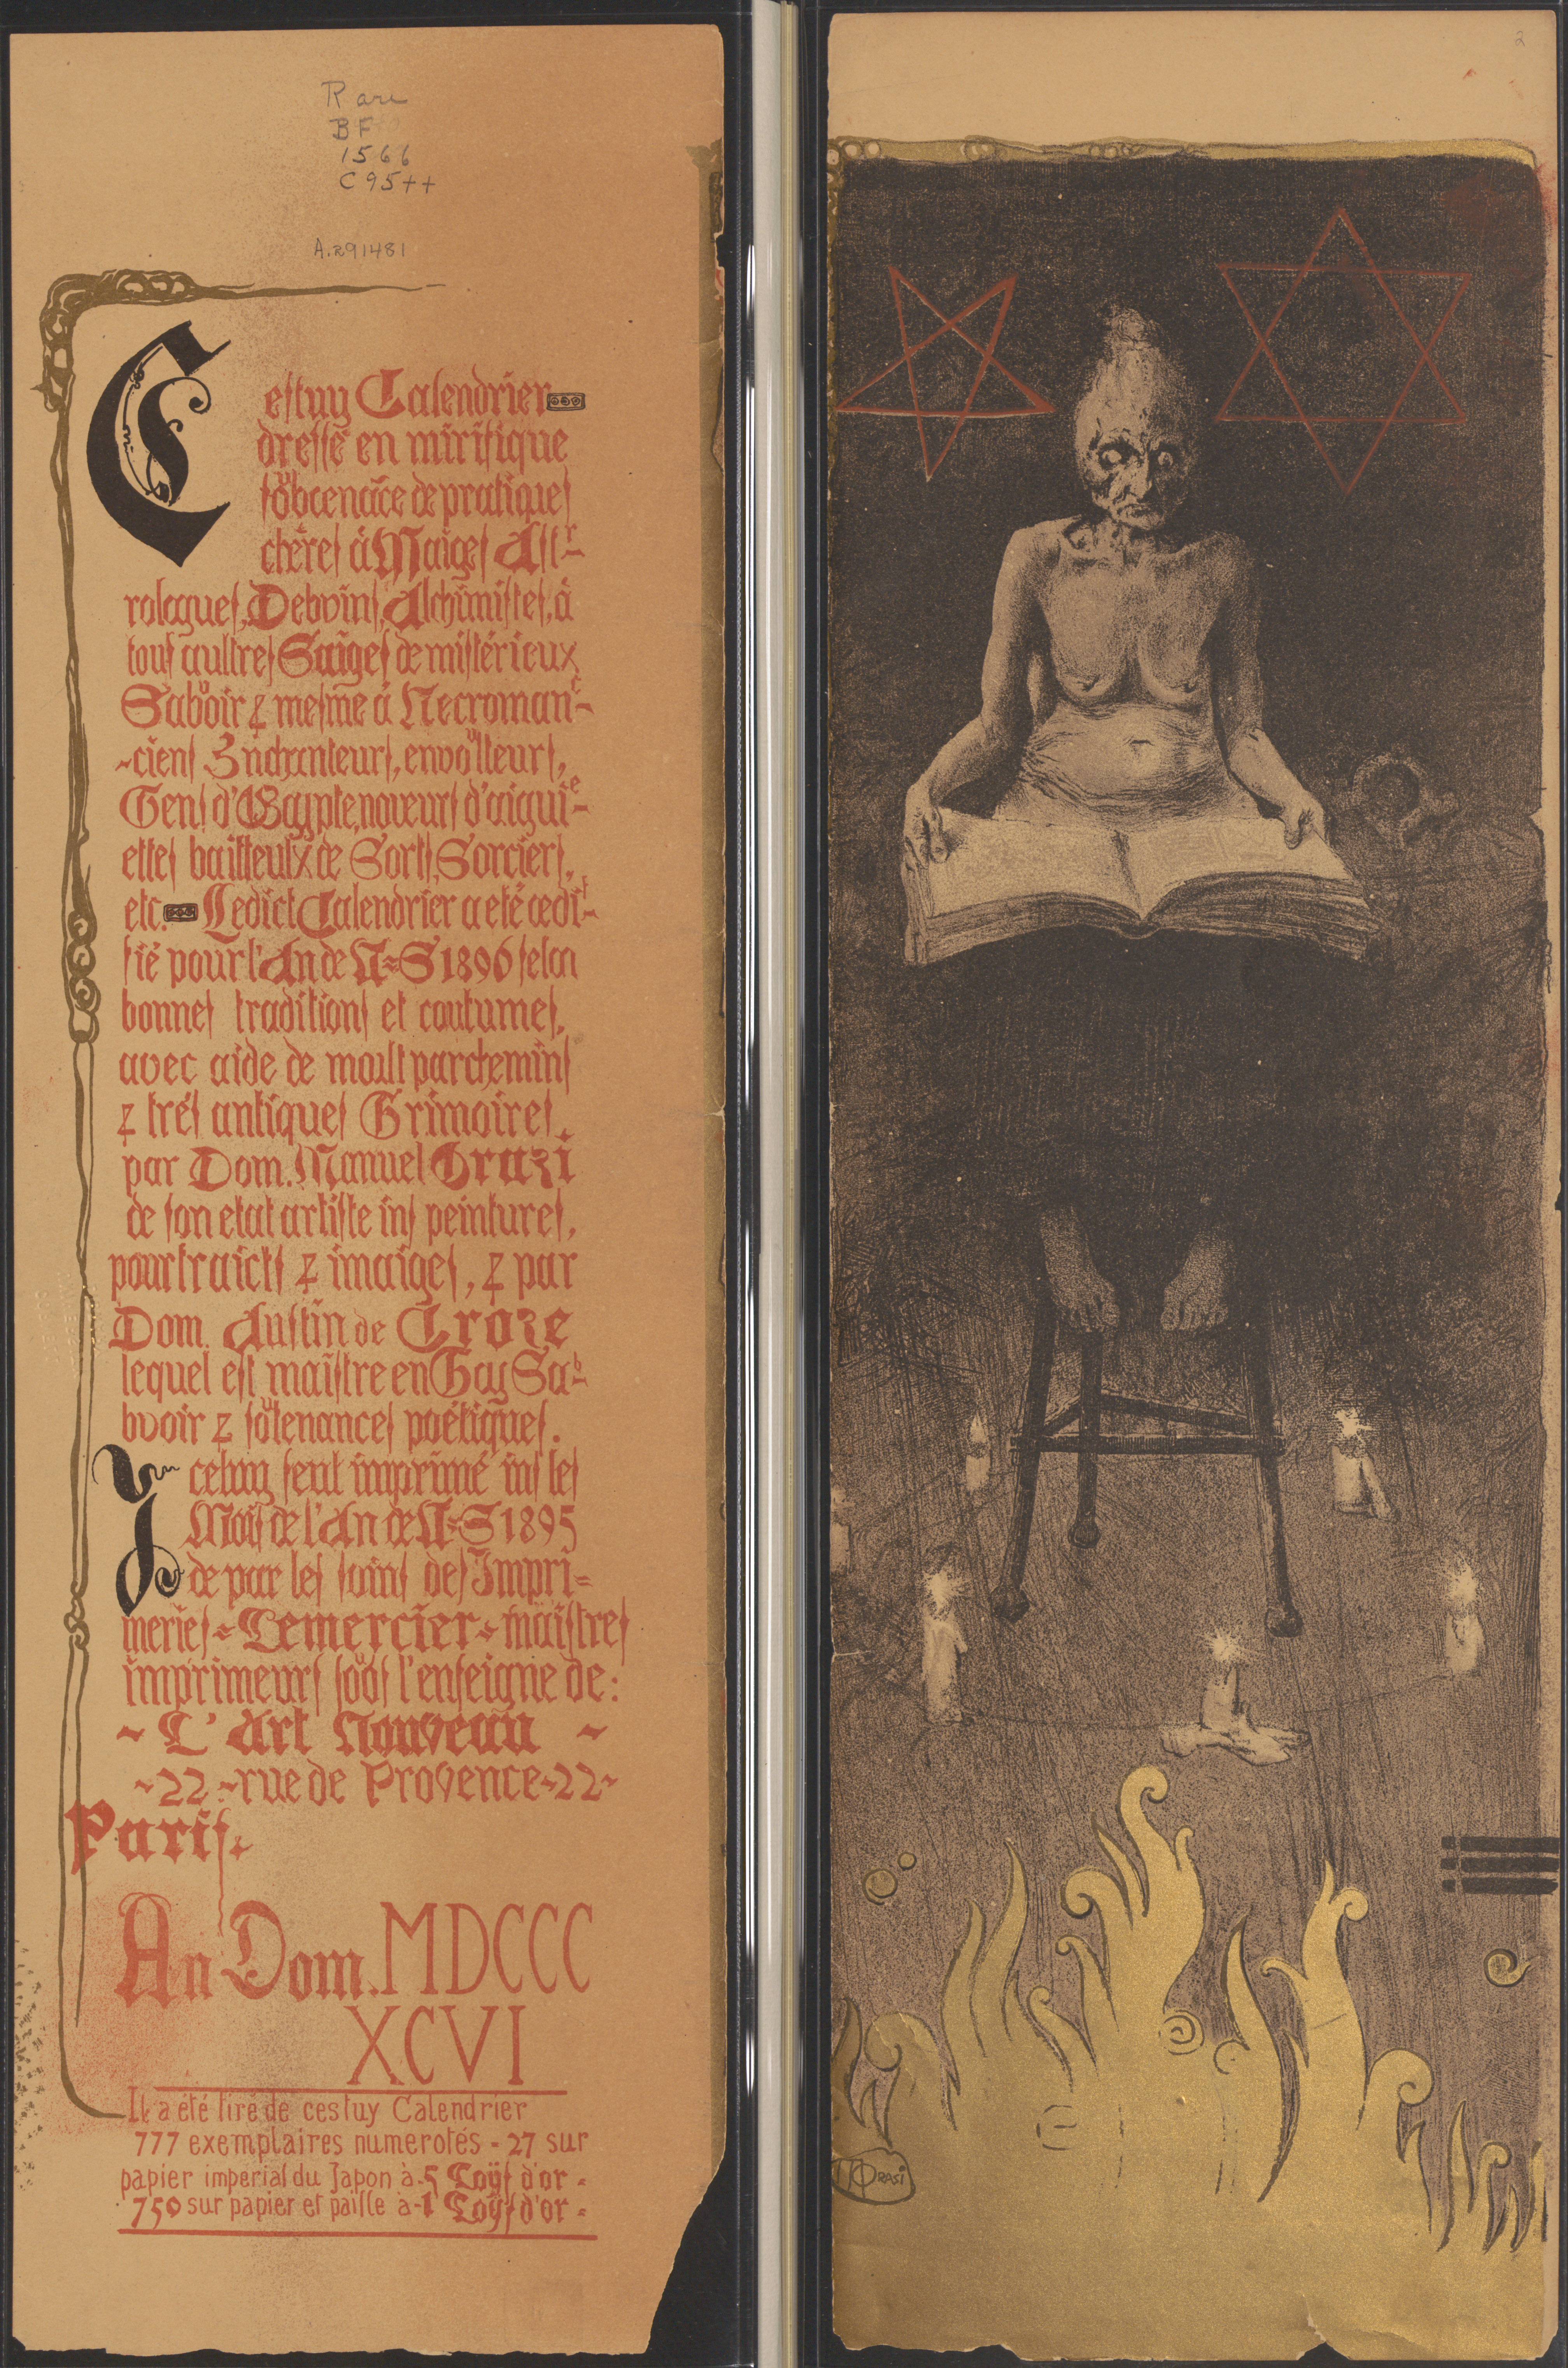 Rare
BF
1566
C95++
A.291481
Cestuy Calendrier
dressé en mirifique
de pratiques
chères à Maiges Ast-
rologues, Debvins, Alchimistes, à
tous aultres Saiges de mistérieux
Saboir & mesme à Necroman-
-ciens Enchanteurs, envoulteurs,
Gens d'Egypte, noueurs d'aigui-
ettes bailleulx de Sorts, Sorciers,
etc. Ledict Calendrier a eté œdi-
fié pour l'An de N=S 1896 selon
bonnes traditions et coutumes,
avec aide de moult parchemins
& trés antiques Grimoires,
par Dom. Manuel Orazi
de son etat artiste ins peintures,
pourtraicts & imaiges, & par
Dom. Austin de Croze
lequel est maistre en Gay Sa-
bvoir & poétiques.
Iceluy feut imprimé ins les
Mois de l'An de N=S 1895
de par les soins des Impri=
meries Lemercier maistres
imprimeurs soubs l'enseigne de:
~ L'Art Nouveau ~
~22~rue de Provence~22~
Paris.
An Dom. MDCCC
XCVI
Il a été tiré de cestuy Calendrier
777 exemplaires numerotés - 27 sur
papier impérial du Japon à -5 Loÿs d'or -
750 sur papier et paille à -1 Loÿs d'or -
2
Orasi